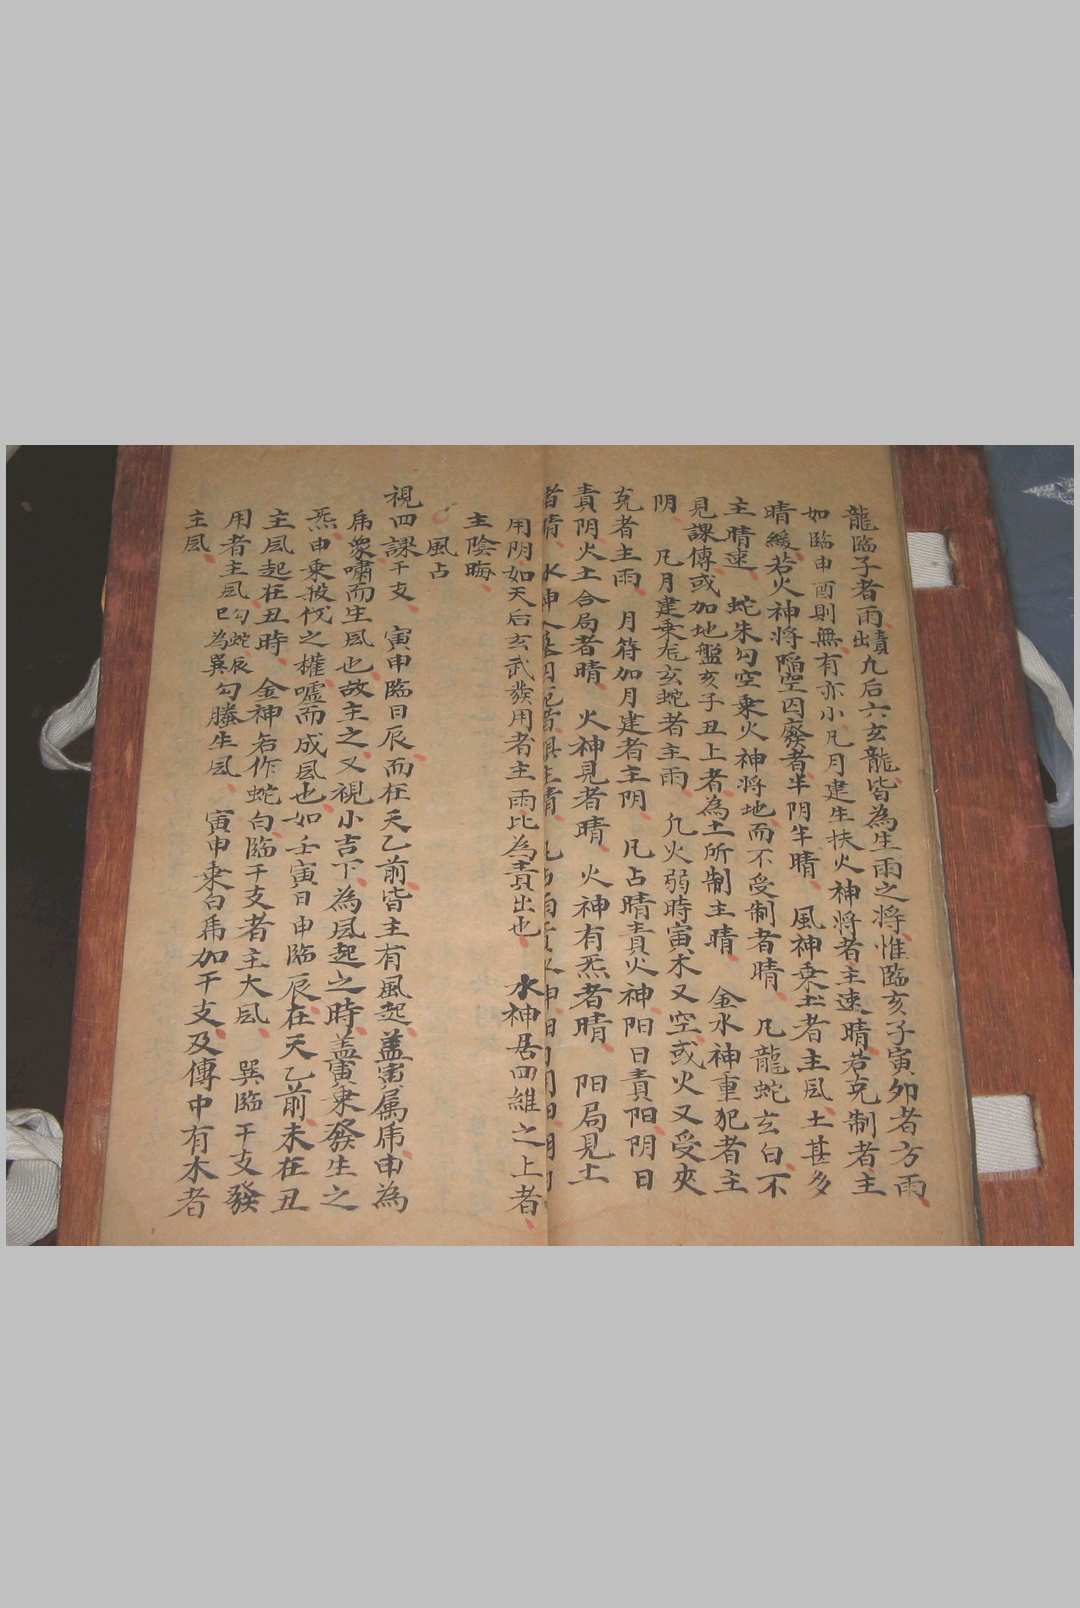 龍臨子者雨責出九后六玄龍皆為生雨之將惟臨亥子寅夘者方雨
如臨申酉則無有亦小凡月建生扶火神將者主速晴若克制者主
晴緩若火神將陷空囚廢者半阴半晴 風神乗土者主凨土甚多
主晴速 蛇朱勾空乗火神將地而不受制者晴 凡龍蛇玄白不
見課傳或加地盤亥子丑上者為土所制主晴 金水神重犯者主
阴 凡月建乗后玄蛇者主雨 凢火弱時寅木又空或火又受夾
克者主雨 月符加月建者主阴 凡占晴責火神阳日責阳阴日
責阴火土合局者晴 火神見者晴 火神有炁者晴 阳局見土
者晴 水神
用阴如天后玄武發用者主雨比為責出也 水神居四維之上者
主陰晦
風占
視四課干支 寅申臨日辰而在天乙前皆主有風起盖寅属虎申為
虎衆嘯而生凨也故主之又視小吉下為凨起之時盖寅乗發生之
炁申乗披伐之權噓而成凨也如壬寅日申臨辰在天乙前未在丑
主凨起在丑時 金神名作蛇白臨干支者主大凨 巽臨干支發
用者主凨勾蛇辰巳為巽勾螣生凨 寅申乗白虎加干支及傳中有木者
主凨